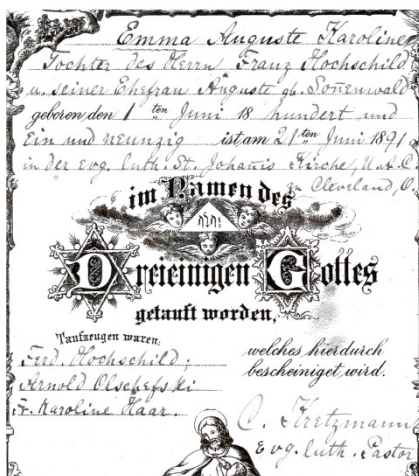 Emma Auguste Karoline
Tochter des Herrn Franz Hochschild
u. seiner Ehefrau Auguste geb. Sonenwald
geboren den 1ten Juni 18 hundert und
Ein und neunzig ist am 21ten Juni 1891
in der evg. luth. St. Johanis Kirche, U.A.C.
zu Cleveland, O.
im Namen des
Dreieinigen Gottes
getauft worden,
Taufzeugen waren:
Ferd. Hochschild;
Arnold Olschefski
Fr. Karoline Haar.
welches hierdurch
bescheiniget wird.
C. Kretzmann
Evg. luth. Pastor